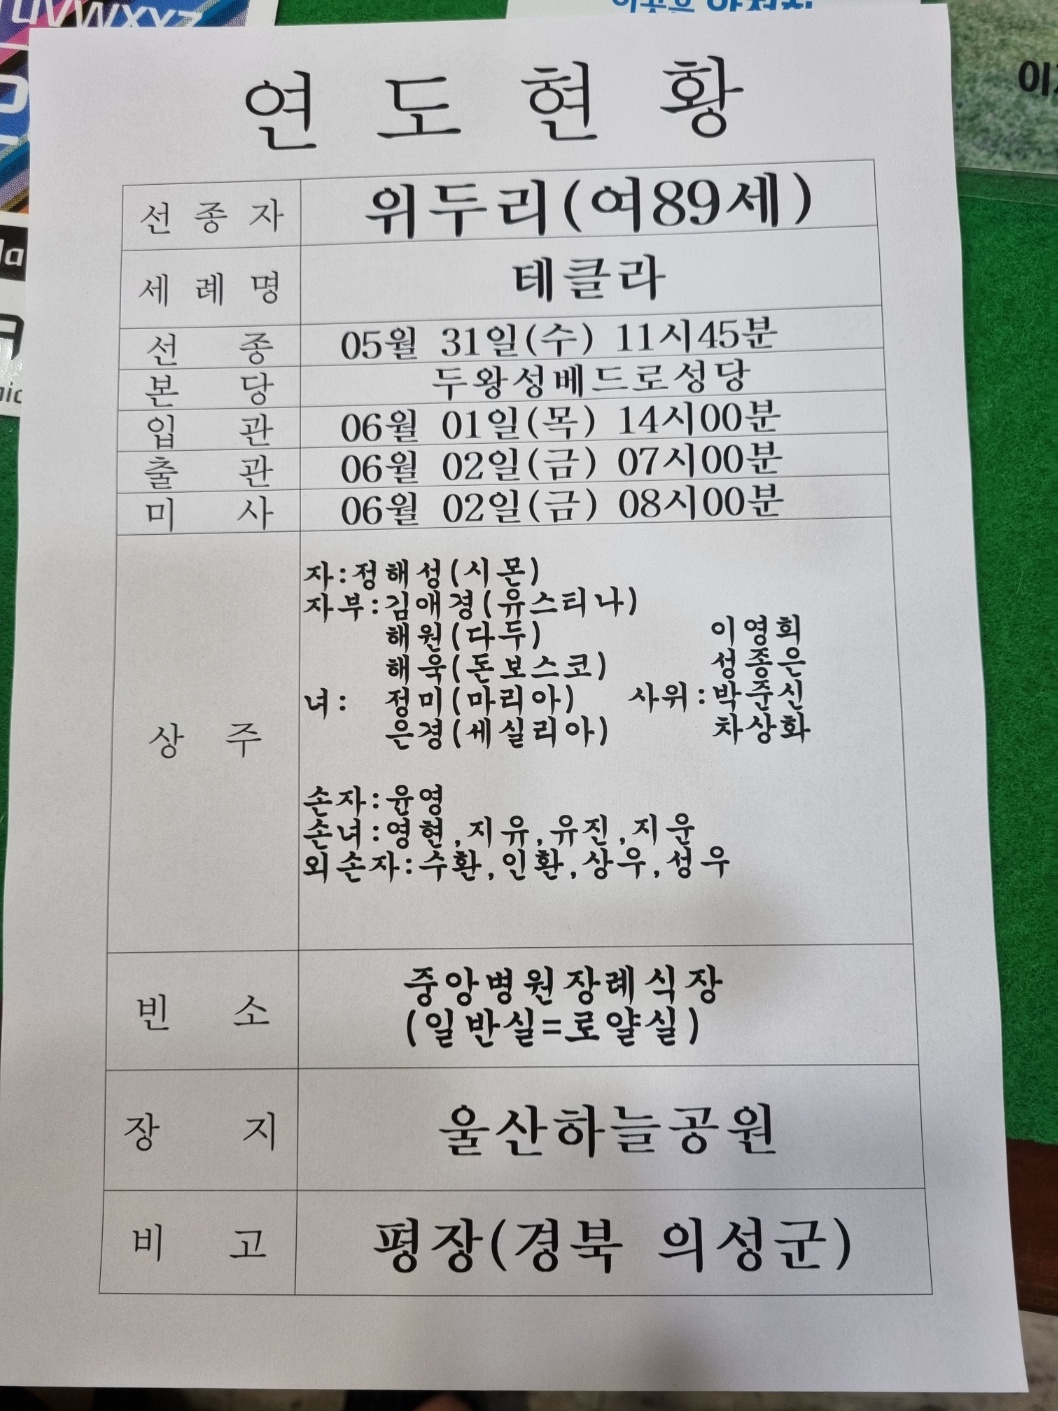 연 도 현 황
선 종 자 위두리(여89세)
세 례 명 테클라
선 종 05월 31일(수) 11시45분
본 당 두왕성베드로성당
입 관 06월 01일(목) 14시00분
출 관 06월 02일(금) 07시00분
미 사 06월 02일(금) 08시00분
상 주
자:정해성(시몬)
자부:김애경(유스티나)
해원(다두) 이영희
해욱(돈보스코) 성종은
녀: 정미(마리아) 사위:박준신
은경(세실리아) 차상화
손자:윤영
손녀:영현,지유,유진,지운
외손자:수환,인환,상우,성우
빈 소
중앙병원장례식장
(일반실=로얄실)
장 지 울산하늘공원
비 고 평장(경북 의성군)